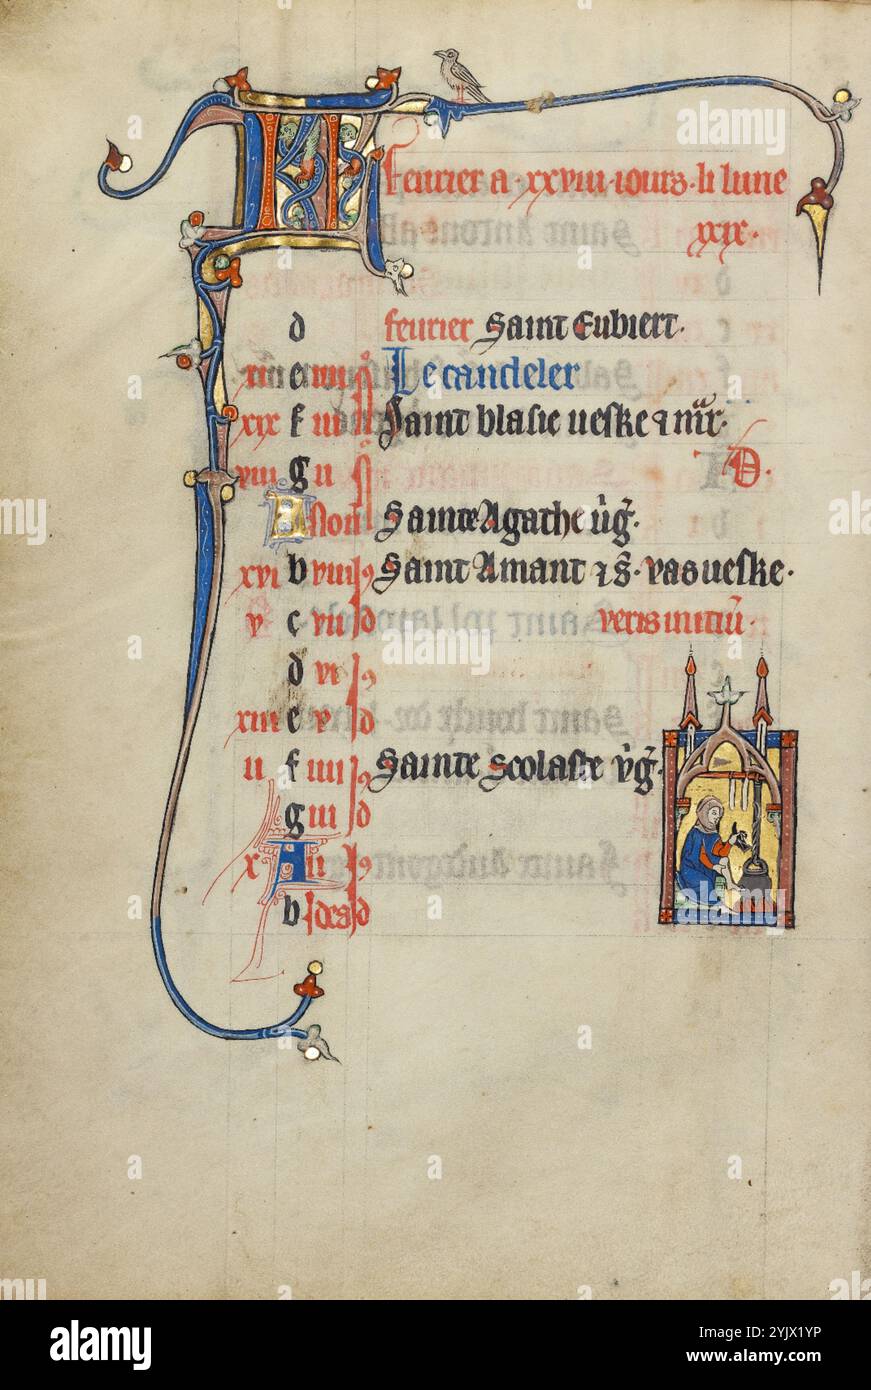 feurier a · xxviii · iours · li lune
xxix ·
d feurier Saint Eubiert ·
xiii e iiii Le candeler
xix f iii Saint blasie ueske
viii g ii
D ·
A non Sainte Agathe
xvi b viii Saint Amant
v c vii d
veris
d vi
xiii e v d
ii f iiii Sainte Scolaste
g iii d
x A ii
b idea d
alamy
Image ID: 2YJX1YP
www.alamy.com